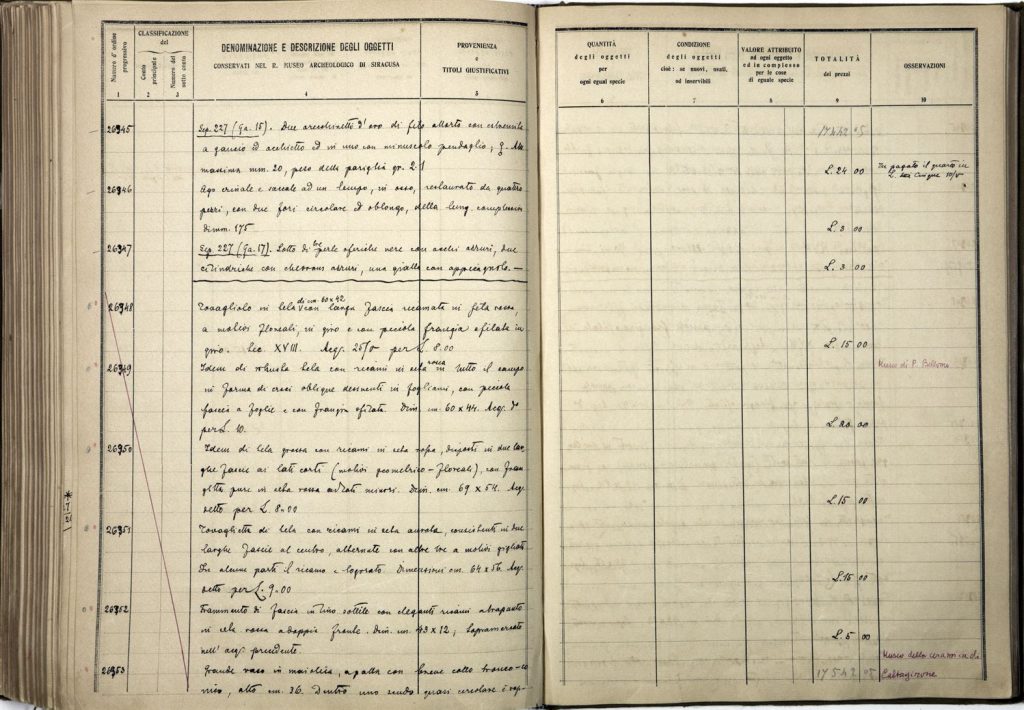 Numero d'ordine progressivo
CLASSIFICAZIONE
del
Conto principale
Numero del sotto conto
DENOMINAZIONE E DESCRIZIONE DEGLI OGGETTI
CONSERVATI NEL R. MUSEO ARCHEOLOGICO DI SIRACUSA
PROVENIENZA
e
TITOLI GIUSTIFICATIVI
1 2 3 4 5
26945 Sep. 227 (Ga. 15). Due orecchinetti d'oro di filo ritorto con estremità
a gancio ed occhietto ed in uno con minuscolo pendaglio;
massima mm. 20, peso della pariglia gr. 2.
26946 Ago crinale e vascale ad un tempo, in osso, restaurato da quattro
pezzi, con due fori circolare ed oblongo, della lung. complessiva
di mm. 175
26947 Sep. 227 (Ga. 17). Lotto di tre perle sferiche nere con occhi azzurri, due
cilindriche con chevrons azzurri, una gialla con appiccagnolo. —
26948 Tovagliolo in tela di cm. 60 x 42 con larga fascia ricamata in seta rossa,
a motivi floreali, in giro e con piccola frangia sfilata in
giro. Sec. XVIII. Acq. per L. 8.00
26949 Idem di robusta tela con ricami in seta rossa in tutto il campo
in forma di croci oblique desinenti in fogliami, con piccola
fascia a foglie e con frangia sfilata. Dim. cm. 60 x 44. Acq.
per L. 10.
26950 Idem di tela grossa con ricami in seta rossa, disposti in due lar-
ghe fascie ai lati corti (motivi geometrico - floreali), con fran-
getta pure in seta rossa ai lati minori. Dim. cm. 69 x 54. Acq.
detto per L. 8.00
26951 Tovaglietta di tela con ricami in seta consistenti in due
larghe fascie al centro, alternate con altre tre a motivi
In alcune parti il ricamo è logorato. Dimensioni cm. 64 x 56. Acq.
detto per L. 9.00
26952 Frammento di fascia in lino sottile con eleganti ricami a trapunto
in seta rossa a doppia fronte. Dim. cm. 43 x 12;
nell'acq. precedente
26953 Grande vaso in maiolica, a palla con breve collo tronco-co-
nico, alto cm. 36. Dentro uno scudo quasi circolare è rap-
QUANTITÀ
degli oggetti
per
ogni egual specie
CONDIZIONE
degli oggetti
cioè: se nuovi, usati,
od inservibili
VALORE ATTRIBUITO
ad ogni oggetto
ed in complesso
per le cose
di eguale specie
TOTALITÀ
dei prezzi
OSSERVAZIONI
6 7 8 9 10
17442 05
L. 24 00 pagato il quarto in
L. cinque
L. 3 00
L. 3 00
L. 15 00
Museo di P. Bellomo
L. 20 00
L. 15 00
L. 15 00
L. 5 00
Museo della ceramica di
17542 05 Caltagirone